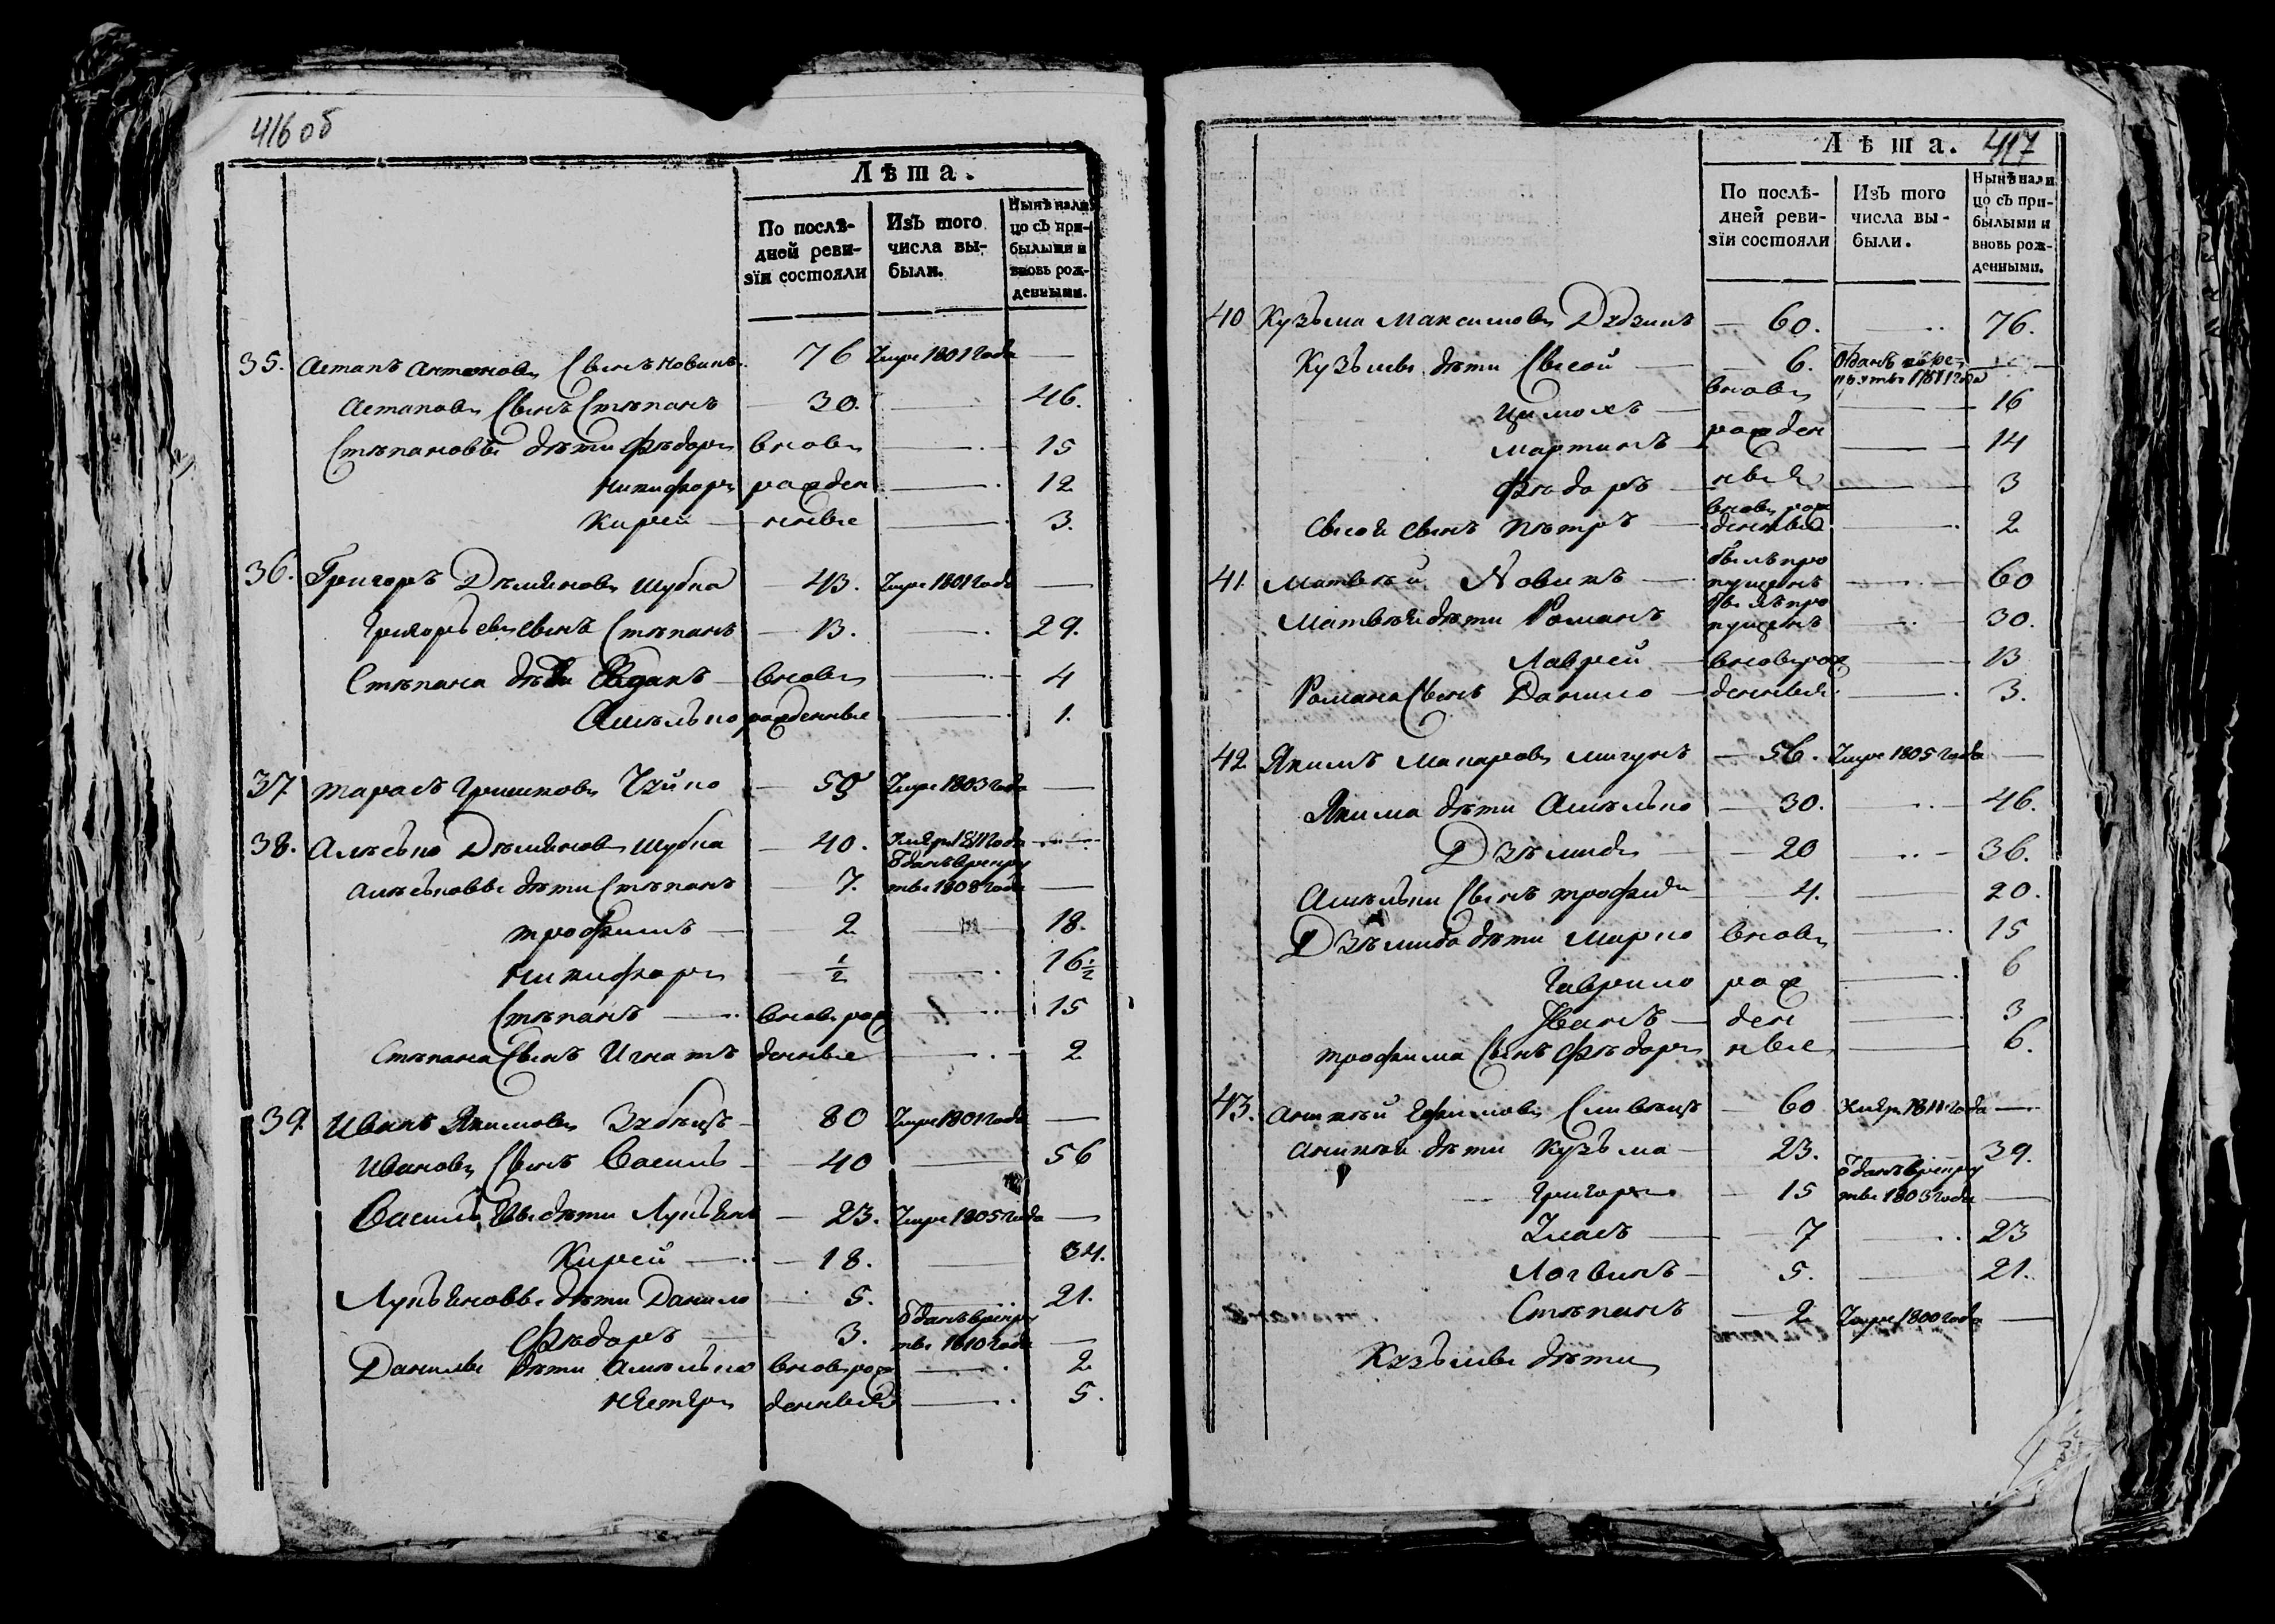 416 об
Лѣта.
По послѣ-
дней реви-
зїи состояли
Изъ того
числа вы-
были.
Нынѣ нали
цо съ при-
былыми и
вновь рож-
денными.
35. Астапъ Антоновъ Сынъ Новикъ 76 умре 1801 года —
Астаповъ Сынъ Стѣпанъ 30. — 46.
Стѣпановы дѣти Фѣдоръ вновь — 15
Никифоръ рожден — 12
Кирей — нные — 3.
36. Григоръ Дѣмяновъ Шубка 43. умре 1801 года —
Григорьевъ Сынъ Стѣпанъ — 13. — 29.
Стѣпана дѣти вновь — 4
Амѣлько рожденные — 1.
37 Тарасъ Гришковъ Чуйко — 59 умре 1803 года —
38. Алѣсько Дѣмяновъ Шубка — 40. умеръ 1811 года —
Алѣськовы дѣти Стѣпанъ — 7. отданъ врекру
ты 1808 года —
Трофимъ — 2 — 18.
Никифоръ — ½ — 16½
Стѣпанъ — вновь рож — 15
Стѣпана Сынъ Игнатъ денные — 2
39. Иванъ Якимовъ Зубѣцъ — 80 умре 1801 года —
Ивановъ Сынъ Василь — 40 — 56
Васильевы дѣти Лукъянъ — 23. умре 1805 года —
Кирей — 18. — 34.
Лукъяновы дѣти Данило — 5. — 21.
Фѣдоръ — 3. отданъ врекру
ты 1810 года —
Данилы дѣти Амѣлько вновь рож — 2
Нестеръ денные — 5.
Лѣта. 417
По послѣ-
дней реви-
зїи состояли
Изъ того
числа вы-
были.
Нынѣ нали
цо съ при-
былыми и
вновь рож-
денными.
40 Кузьма Максимовъ — 60. — 76.
Кузьмы дѣти Сысой — 6. отданъ врекруты года —
Цимохъ — вновь — 16
Мартинъ — рожден — 14
Фѣдоръ — ные — 3
Сысоя Сынъ Пѣтръ — вновь рож
денные — 2
41. Матвѣй Новикъ — былъ про
пущенъ — 60
Матвѣя дѣти Романъ былъ про
пущенъ — 30.
Лаврей — вновь рож — 13
Романа Сынъ Данило — денные — 3.
42 Якимъ Макаровъ Мигунъ — 56. умре 1805 года —
Якима дѣти Амѣлько — 30. — 46.
Дзѣмидъ — 20 — 36.
Амѣльки Сынъ Трофимъ — 4. — 20.
Дзѣмида дѣти Марко вновь — 15
Гаврило рож — 6
Иванъ — ден — 3
Трофима Сынъ Фѣдоръ ные — 6.
43. Аникѣй Ефимовъ Сливѣцъ — 60 умеръ 1811 года —
Аникѣя дѣти Кузьма — 23. — 39.
Григорей — 15 отданъ врекру
ты 1803 года —
Уласъ — 7 — 23
Логвинъ — 5. — 21.
Стѣпанъ — 2 умре 1800 года —
Кузьмы дѣти